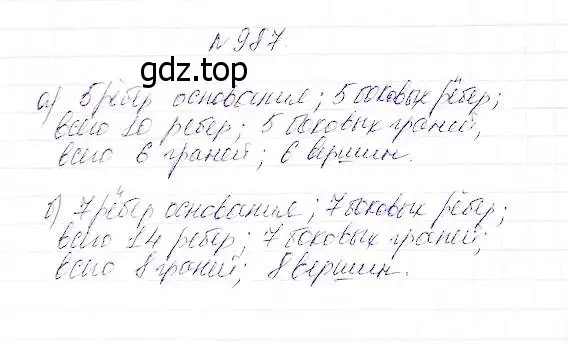 № 987.
gdz.top
а) 5 рёбер основания; 5 боковых рёбер;
всего 10 ребер; 5 боковых граней,
всего 6 граней; 6 вершин.
б) 7 рёбер основания; 7 боковых рёбер;
всего 14 ребер; 7 боковых граней;
всего 8 граней; 8 вершин.